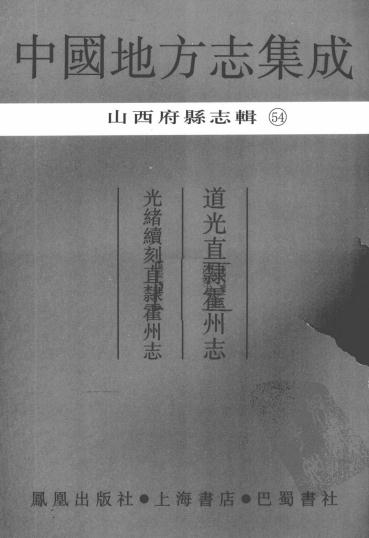 中國地方志集成
山西府縣志輯 54
道光直隸霍州志
光緒續刻直隸霍州志
鳳凰出版社●上海書店●巴蜀書社